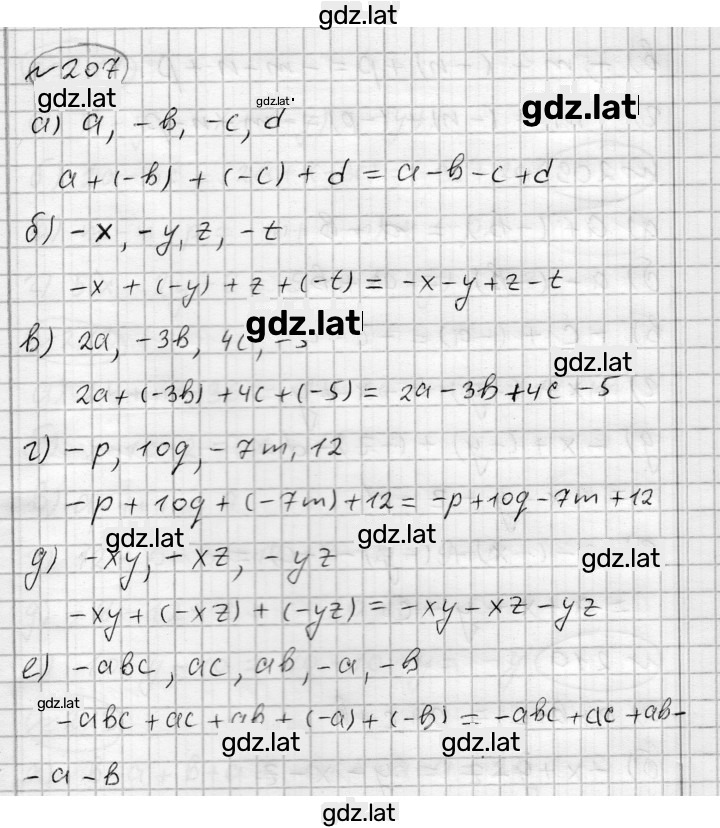 gdz.lat
№207
gdz.lat
gdz.lat
gdz.lat
а) a, -b, -c, d
a + (-b) + (-c) + d = a - b - c + d
б) -x, -y, z, -t
-x + (-y) + z + (-t) = -x - y + z - t
gdz.lat
в) 2a, -3b, 4c, -5
gdz.lat
2a + (-3b) + 4c + (-5) = 2a - 3b + 4c - 5
г) -p, 10q, -7m, 12
-p + 10q + (-7m) + 12 = -p + 10q - 7m + 12
gdz.lat
gdz.lat
gdz.lat
д) -xy, -xz, -yz
-xy + (-xz) + (-yz) = -xy - xz - yz
е) -abc, ac, ab, -a, -b
gdz.lat
-abc + ac + ab + (-a) + (-b) = -abc + ac + ab -
gdz.lat
gdz.lat
- a - b
gdz.lat